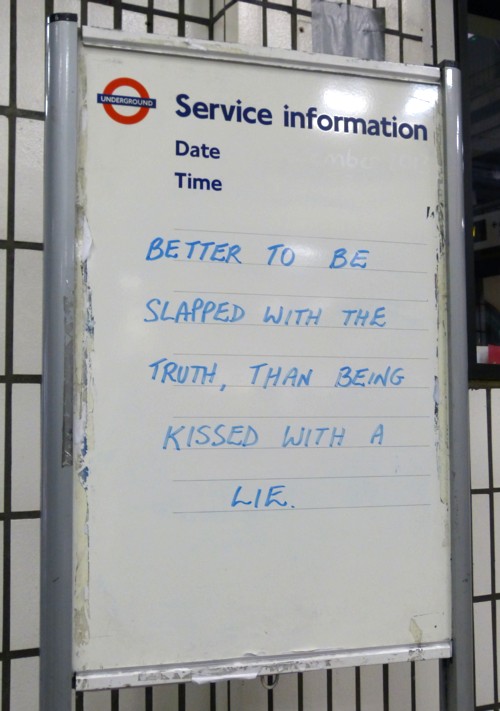 UNDERGROUND
Service information
Date
Time
BETTER TO BE
SLAPPED WITH THE
TRUTH, THAN BEING
KISSED WITH A
LIE.